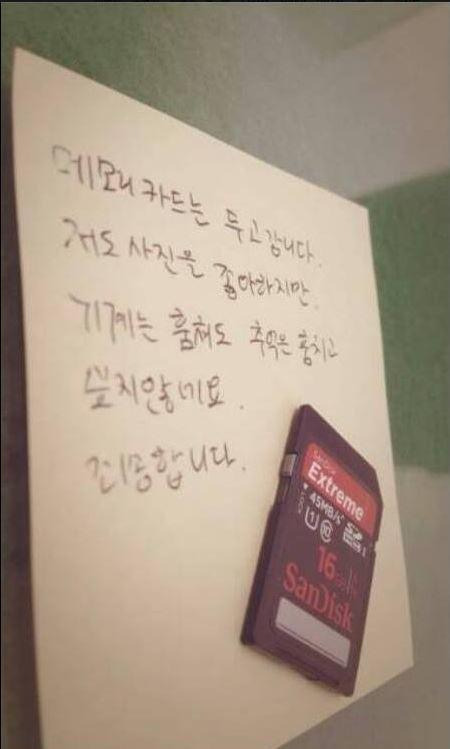 메모리 카드는 두고 갑니다.
저도 사진을 좋아하지만.
기계는 훔쳐도 추억은 훔치고
싶지않네요.
죄송합니다.
SanDisk
Extreme
45MB/s
1 10 SD HC I
16 GB
SanDisk